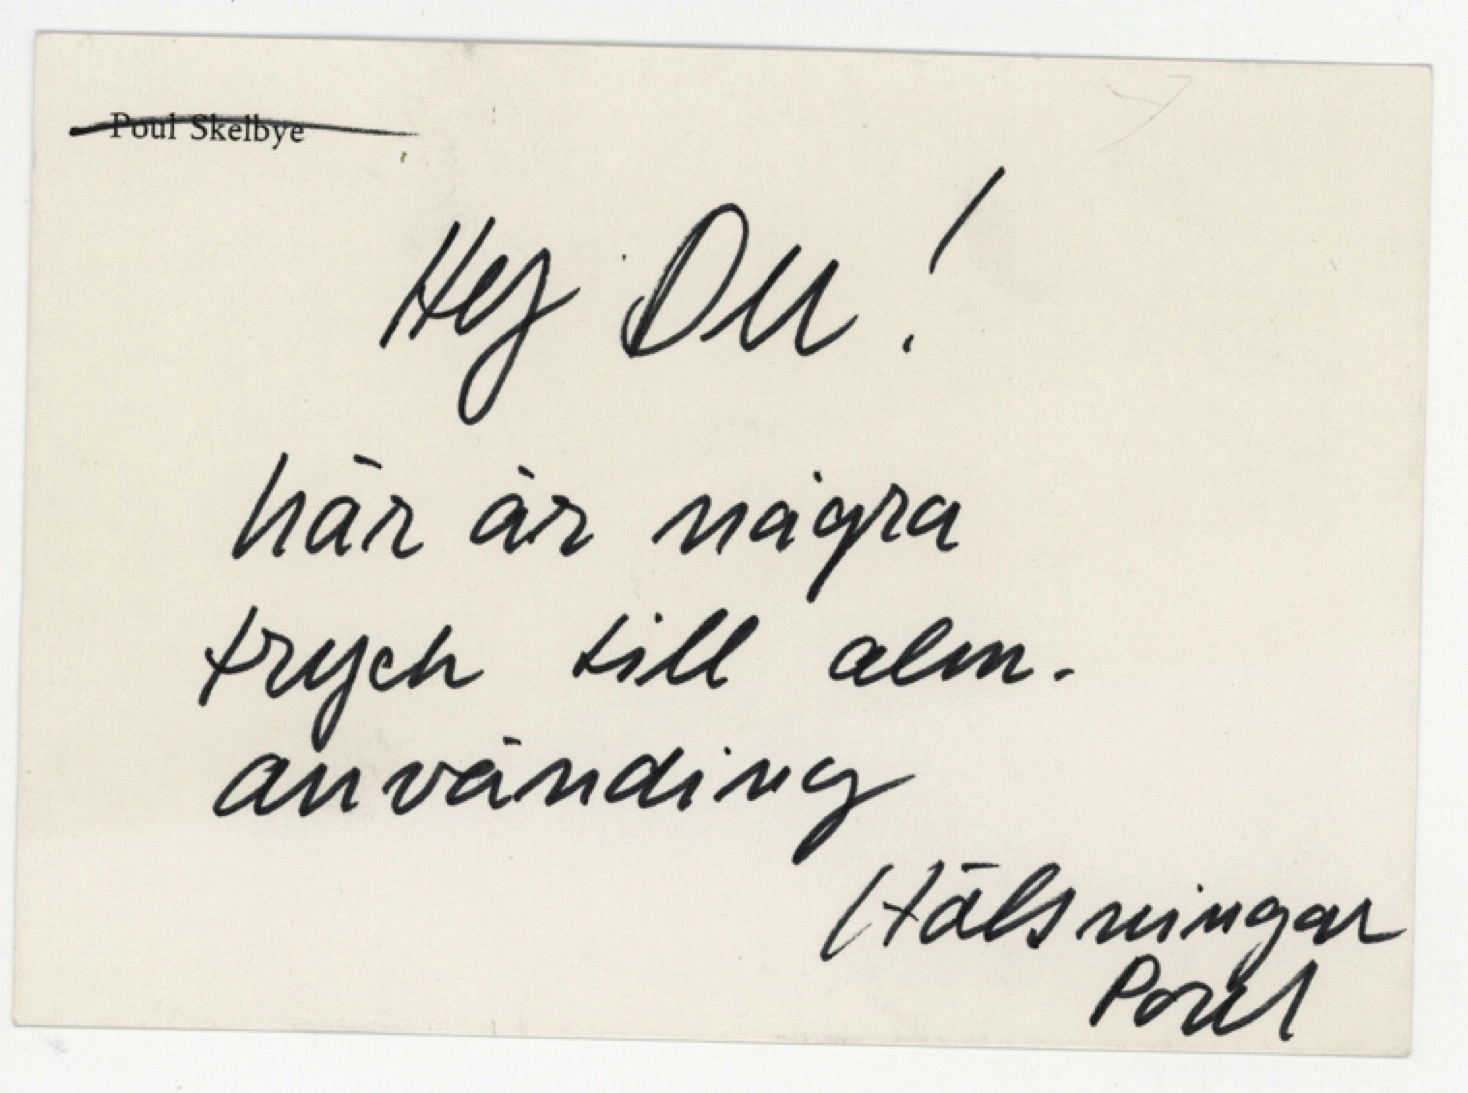 Poul Skelbye
Hej Du!
här är några
tryck till alm.
använding
Hälsningar
Poul